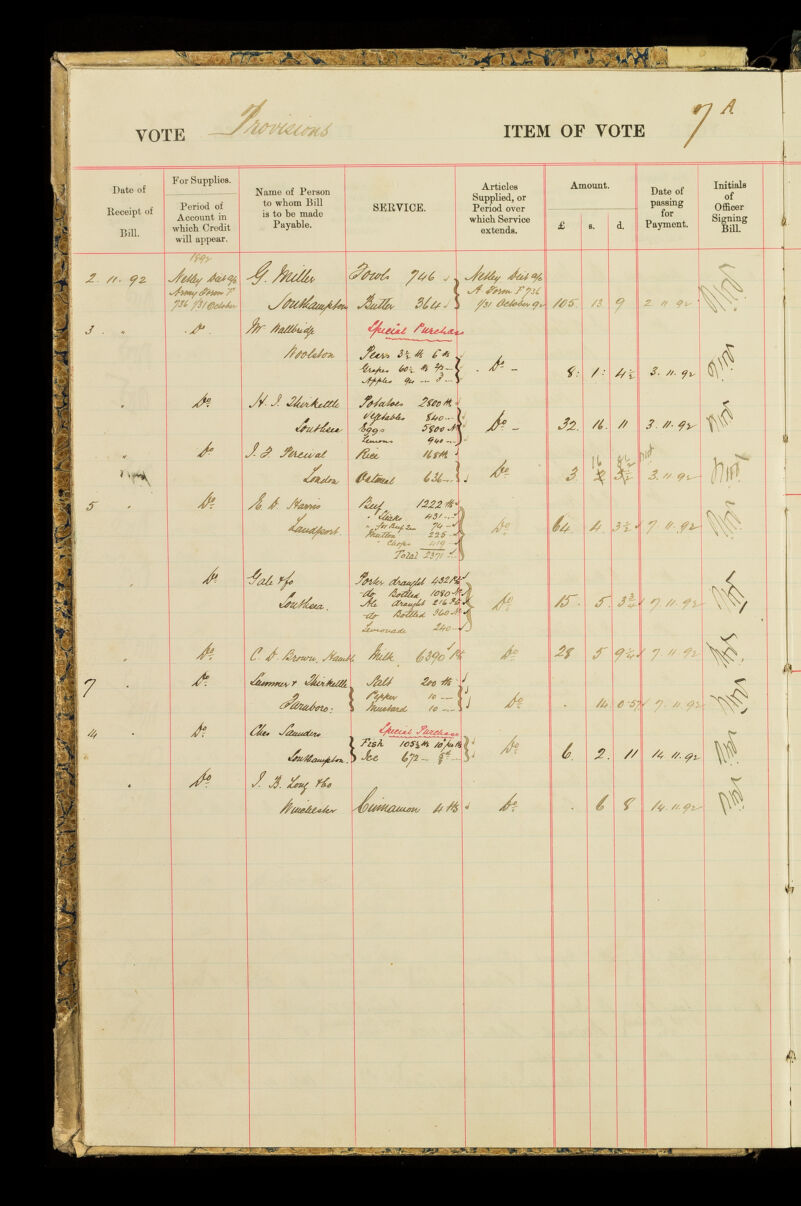 VOTE Provisions ITEM OF VOTE 7 A
Date of Receipt of Bill.
For Supplies.
Period of Account in which Credit will appear.
Name of Person to whom Bill is to be made Payable.
SERVICE.
Articles Supplied, or Period over which Service extends.
Amount.
£ s. d.
Date of passing for Payment.
Initials of Officer Signing Bill.
1892
2. 11. 92 Netley Diet a/c G. Miller Fowls 746 Netley Diet a/c
Army Form F A Form F 736
736 1/31 October Southampton Butter 364 1/31 October 92 105. 13. 9 2 11 92
3 . " . Do . Mr Wallbridge Special Purchase
Woolston Pears 3½ lb 6d
Grapes 60½ lb 2/5 . Do - 8: 1: 4½ 3. 11. 92
Apples 94
" Do H. J. Thirkettle Potatoes 2800 lb
Vegetables 840
Southsea Eggs 5800 No Do - 32. 16. 11 3. 11. 92
Lemons 940
" Do J. F. Percival Rice 168 lb
London Oatmeal 636 Do 3 16 8½ 3. 11 92
5 " Do E. D. Harris Beef 1222 lb
" Steaks 431
" for Beef Tea 74
Landport. Mutton 225 Do 64 4. 3½ 7 11. 92
" Chops 419
Total 2371
" Do Gale & Co Porter draught 432 Pts
do Bottled 1080
Southsea. Ale draught 216 Pts Do 15. 5. 3¾ 7. 11. 92
do Bottled 360
Lemonade 240
" Do C. D. Brown, Hamble Milk 6390 Pts Do 28 5 9¾ 7 11 92
7 . Do Lammer & Thirkettle Salt 200 lb
Pepper 10
Farnboro: Mustard 10 Do . 14. 0.57 7. 11. 92
14 . Do Chas Saunders Special Purchase
Fish 105½ lb
Southampton. Ice 672 Do 6. 2. 11 14. 11. 92
" Do J. B. Long & Co
Winchester Cinnamon 4 lb Do . 6 8 14. 11. 92